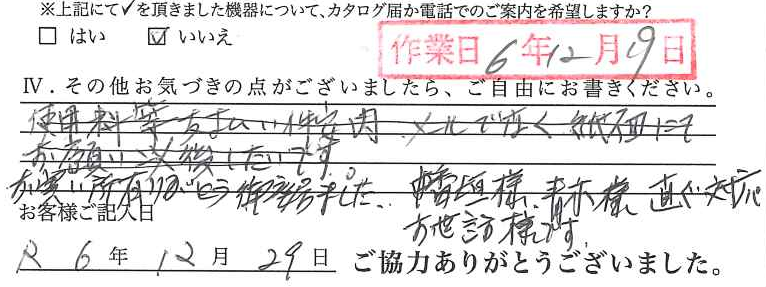 ※上記にて✓を頂きました機器について、カタログ届か電話でのご案内を希望しますか?
□ はい ☑ いいえ
作業日 6年12月19日
Ⅳ．その他お気づきの点がございましたら、ご自由にお書きください。
使用料等 支払い 案内 メールでなく 紙面にて
お願い 致したいです
様 青木様 直ぐ対応
お世話様です
お客様ご記入日
R 6 年 12 月 29 日 ご協力ありがとうございました。